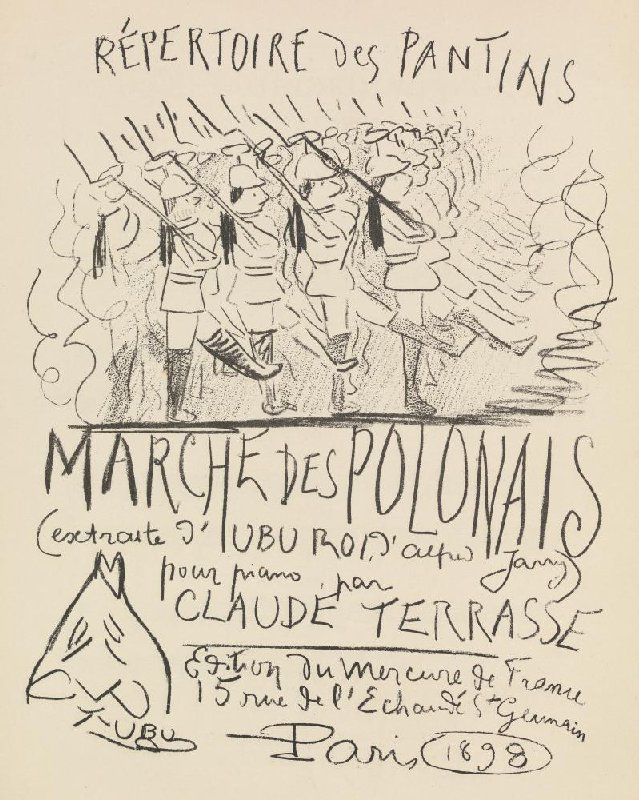 RÉPERTOIRE des PANTINS
MARCHE DES POLONAIS
(extraite d'UBU ROI, d'Alfred Jarry)
pour piano par
CLAUDE TERRASSE
Édition du Mercure de France
15 rue de l'Échaudé St Germain
UBU
Paris 1898